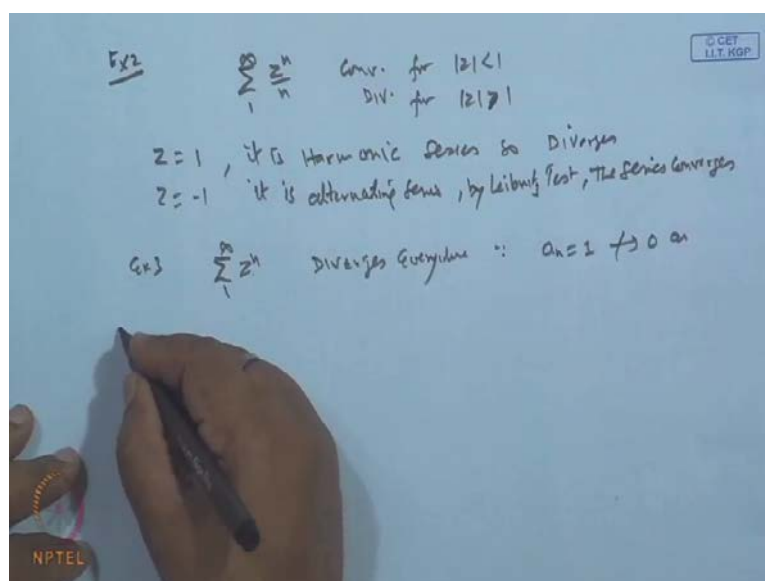 © CET
I.I.T. KGP
Ex2 ∞ Σ 1 z^n/n Conv. for |z|<1
Div. for |z|>1
z = 1, it is Harmonic Series so Diverges
z = -1 it is alternating series, by Leibnitz Test, the series Converges
Ex3 ∞ Σ 1 z^n Diverges Everywhere ∵ an = 1 ↛ 0 as
NPTEL